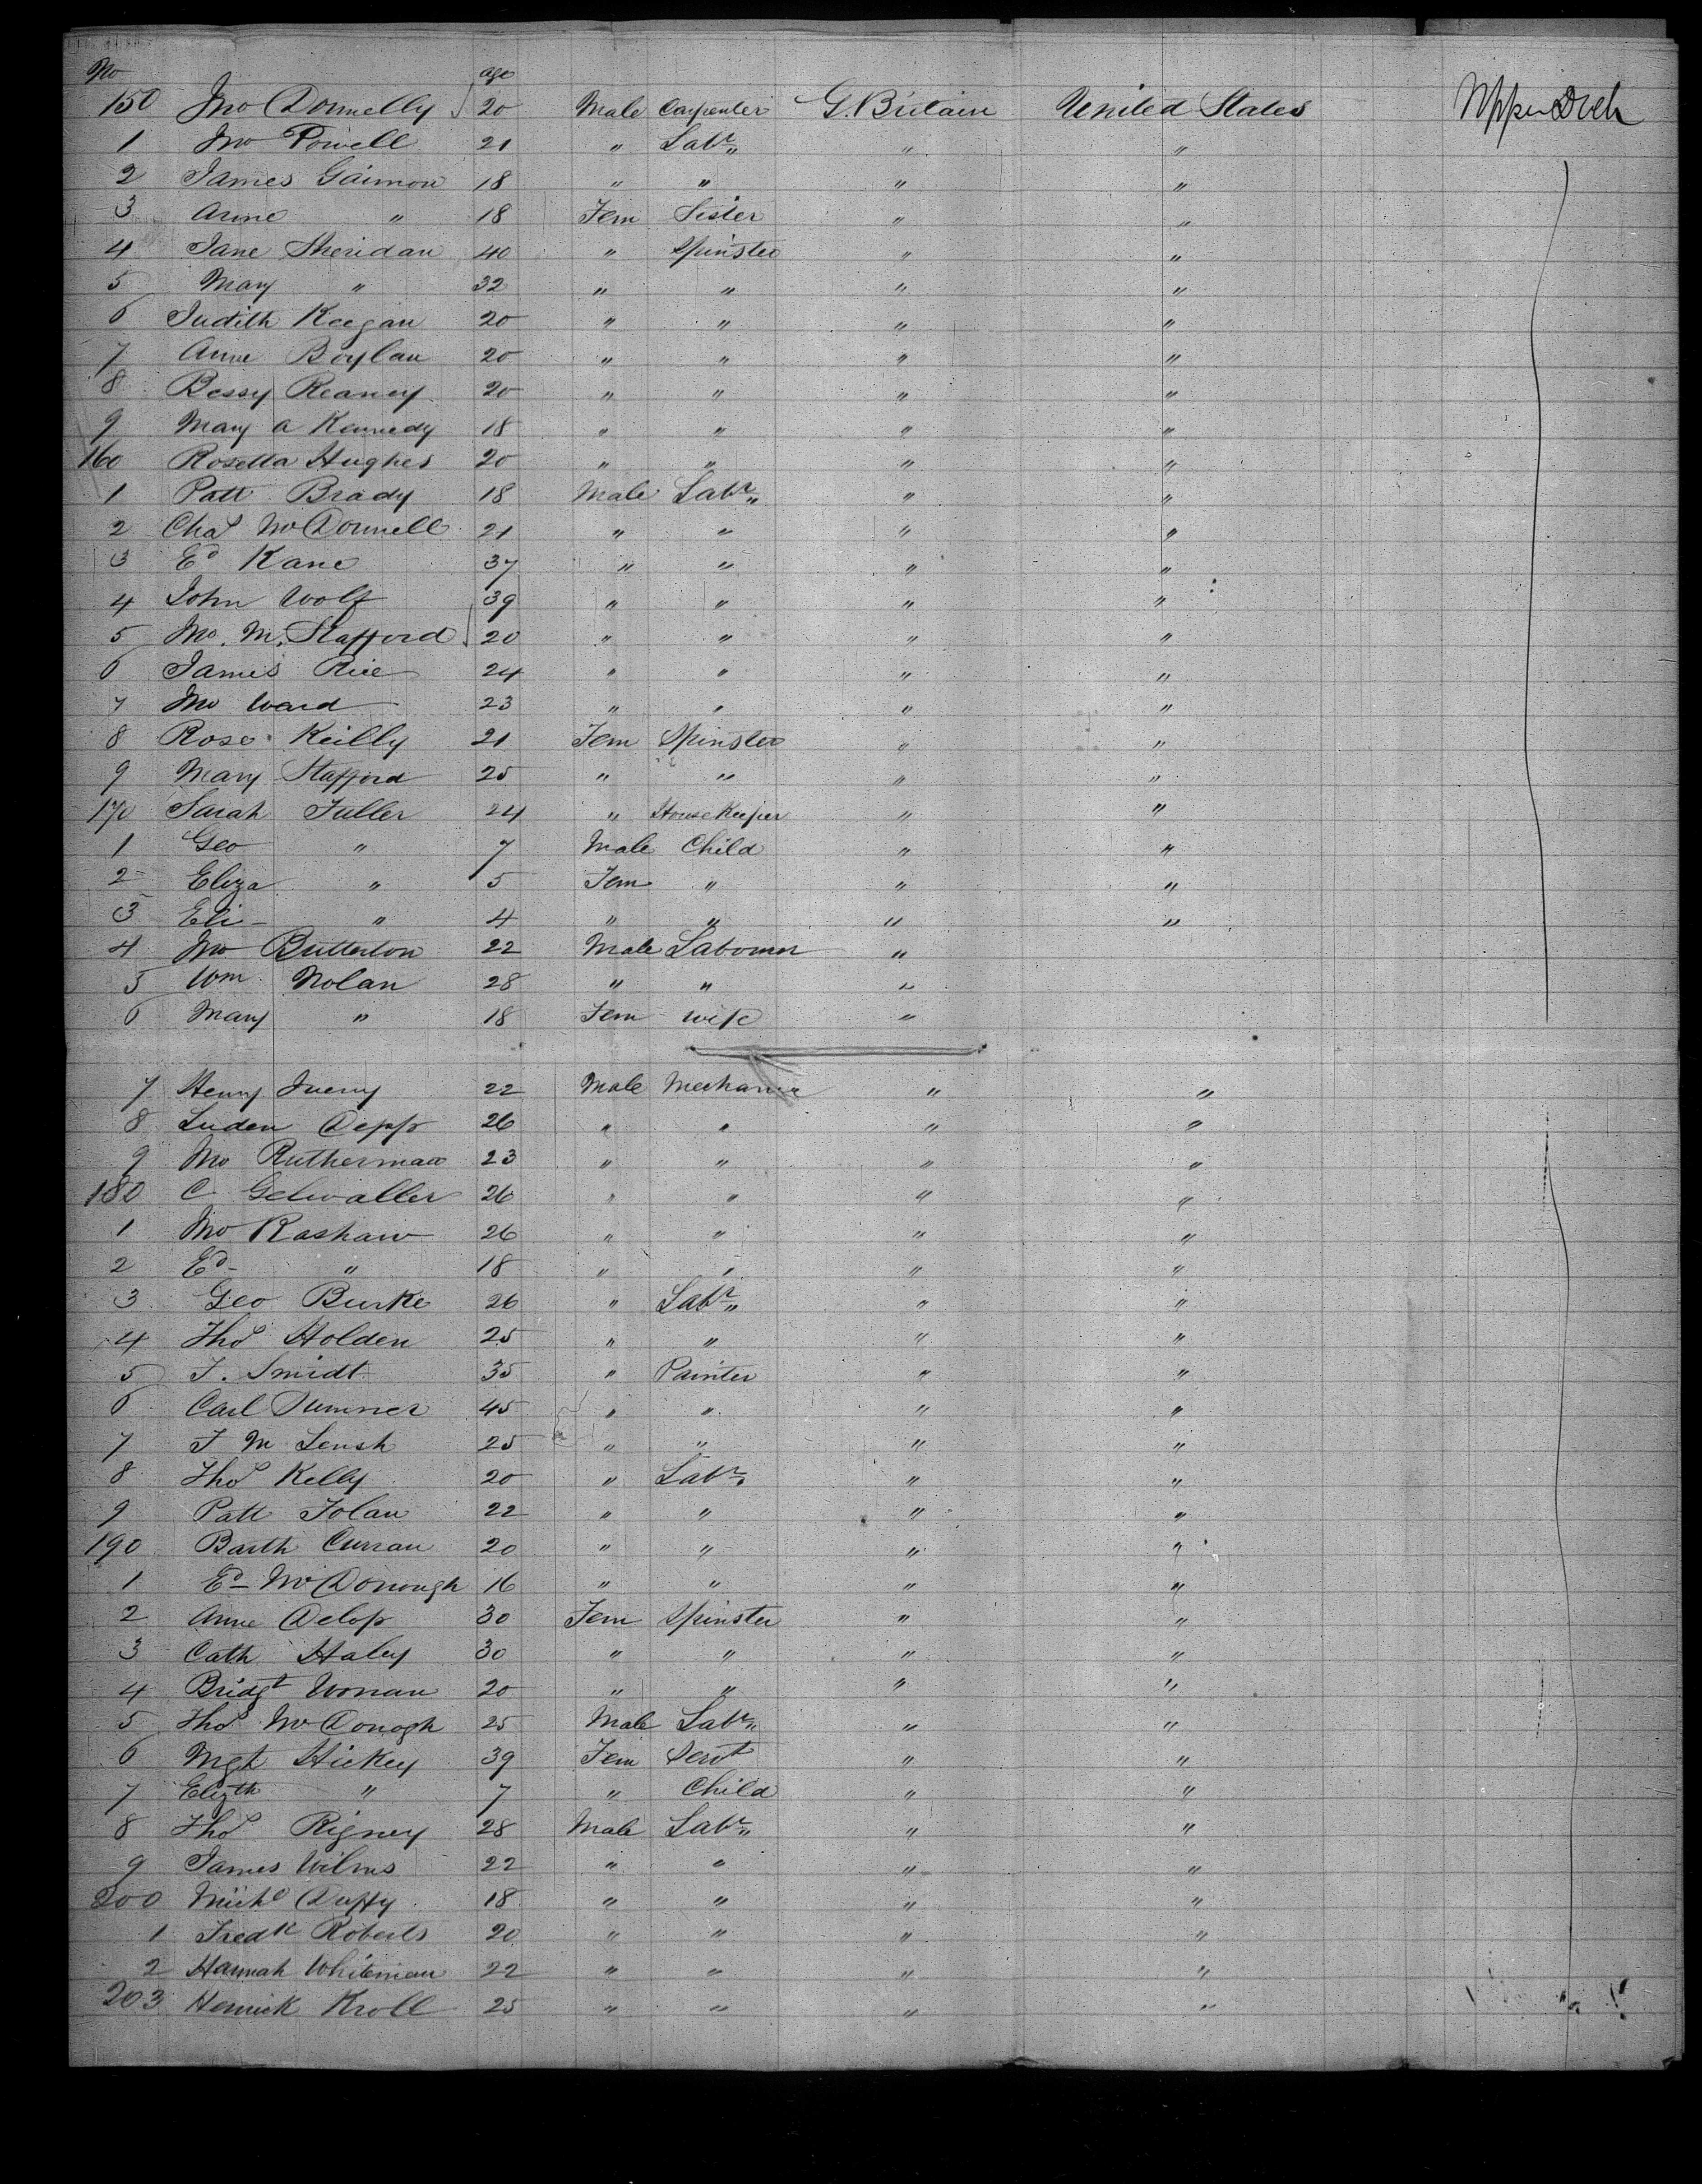 No age
150 Jno Donnelly 20 Male Carpenter G. Britain United States Upper Deck
1 Jno Powell 21 " Labr " "
2 James Gaimon 18 " " " "
3 Anne " 18 Fem Sister " "
4 Jane Sheridan 40 " Spinster " "
5 Mary " 32 " " " "
6 Judith Keegan 20 " " " "
7 Anne Boylan 20 " " " "
8 Bessy Reaney 20 " " " "
9 Mary A Kennedy 18 " " " "
160 Rosetta Hughes 20 " " " "
1 Patt Brady 18 Male Labr " "
2 Chas McDonnell 21 " " " "
3 Ed Kane 37 " " " "
4 John Wolf 39 " " " "
5 Jno. M. Stafford 20 " " " "
6 James Rice 24 " " " "
7 Jno Ward 23 " " " "
8 Rose Reilly 21 Fem Spinster " "
9 Mary Stafford 25 " " " "
170 Sarah Fuller 24 " House Keeper " "
1 Geo " 7 Male Child " "
2 Eliza " 5 Fem " " "
3 Eli " 4 " " " "
4 Jno Butterton 22 Male Labourer "
5 Wm Nolan 28 " " "
6 Mary " 18 Fem wife "
7 Henry 22 Male Mechanic " "
8 Luden Depp 26 " " " "
9 Jno 23 " " " "
180 C 26 " " " "
1 Jno Rashaw 26 " " " "
2 Ed " 18 " " " "
3 Geo Burke 26 " Labr " "
4 Thos Holden 25 " " " "
5 F. Smidt 35 " Painter " "
6 Carl 45 " " " "
7 F M Lensh 25 " " " "
8 Thos Kelly 20 " Labr " "
9 Patt Folan 22 " " " "
190 Barth Curran 20 " " " "
1 Ed McDonough 16 " " " "
2 Anne Delop 30 Fem Spinster " "
3 Cath Haley 30 " " " "
4 Bridgt 20 " " " "
5 Thos McDonogh 25 Male Labr " "
6 Mgt Hickey 39 Fem Servt " "
7 Elizth " 7 " Child " "
8 Thos Rigney 28 Male Labr " "
9 James Wilms 22 " " " "
200 Michl Duffy 18 " " " "
1 Fredk Roberts 20 " " " "
2 Hannah Whiteman 22 " " " "
203 Kroll 25 " " " "